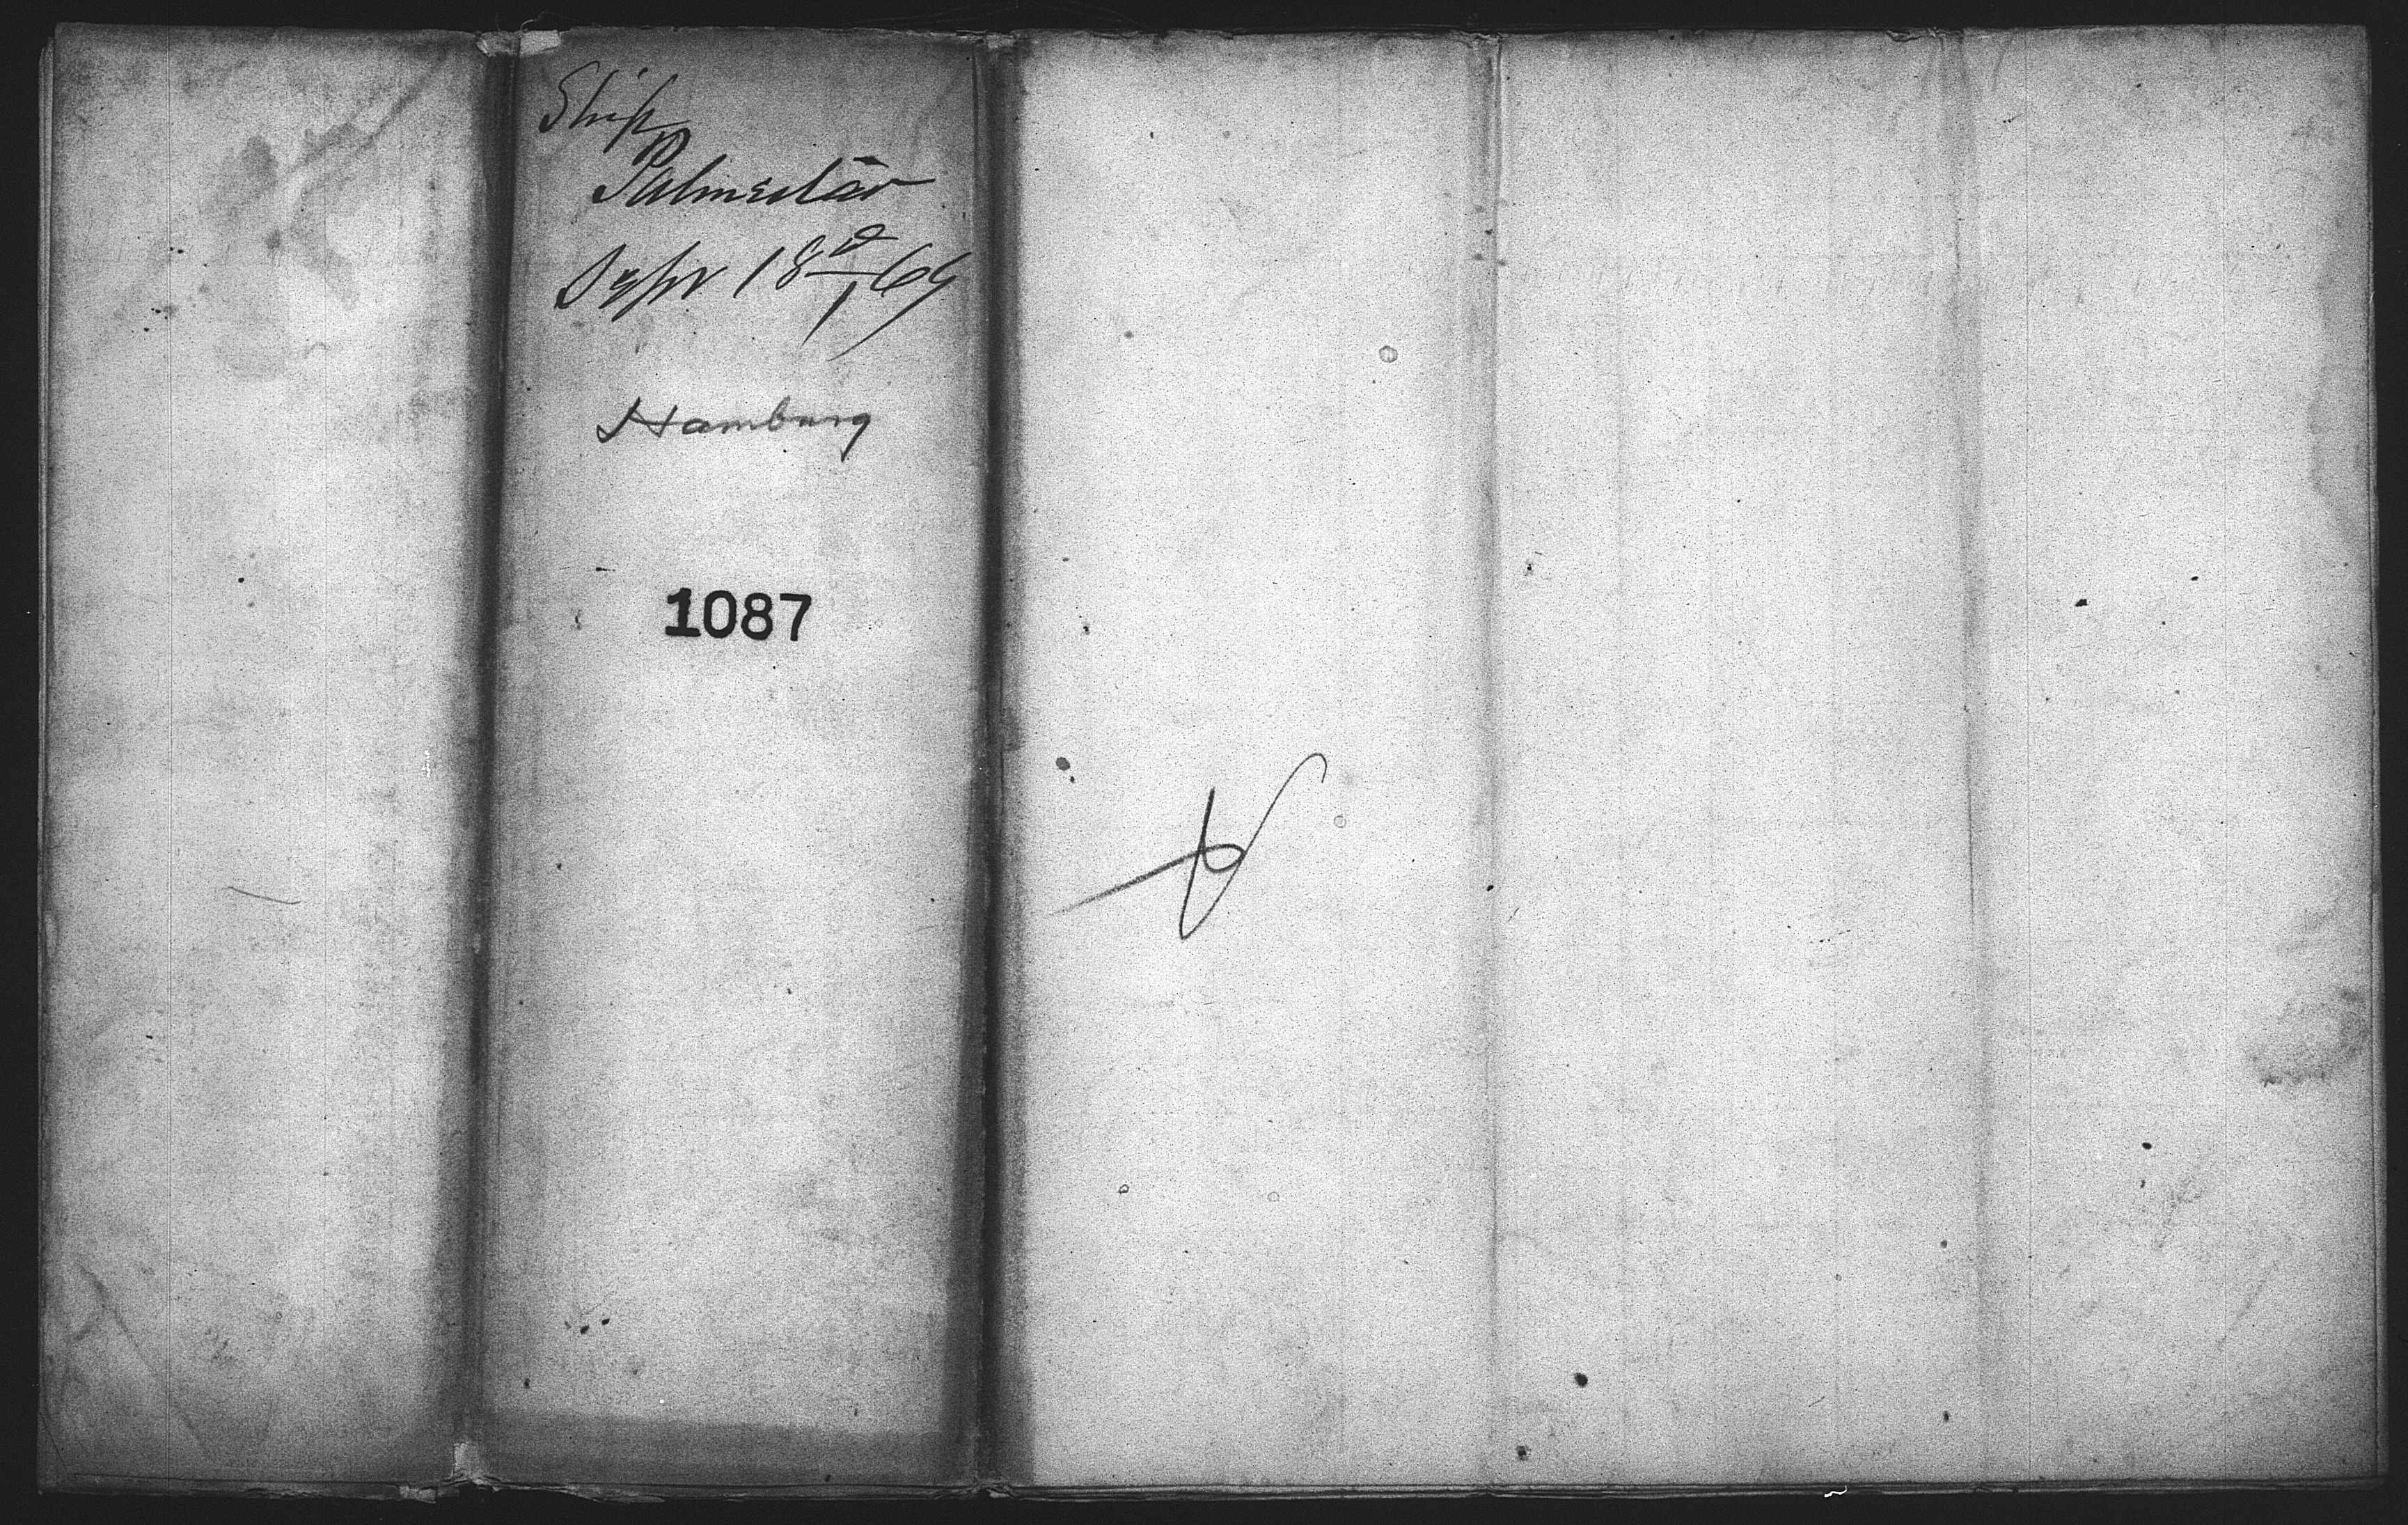 Ship
Palmerston
Sepr 18th/69
Hamburg
1087